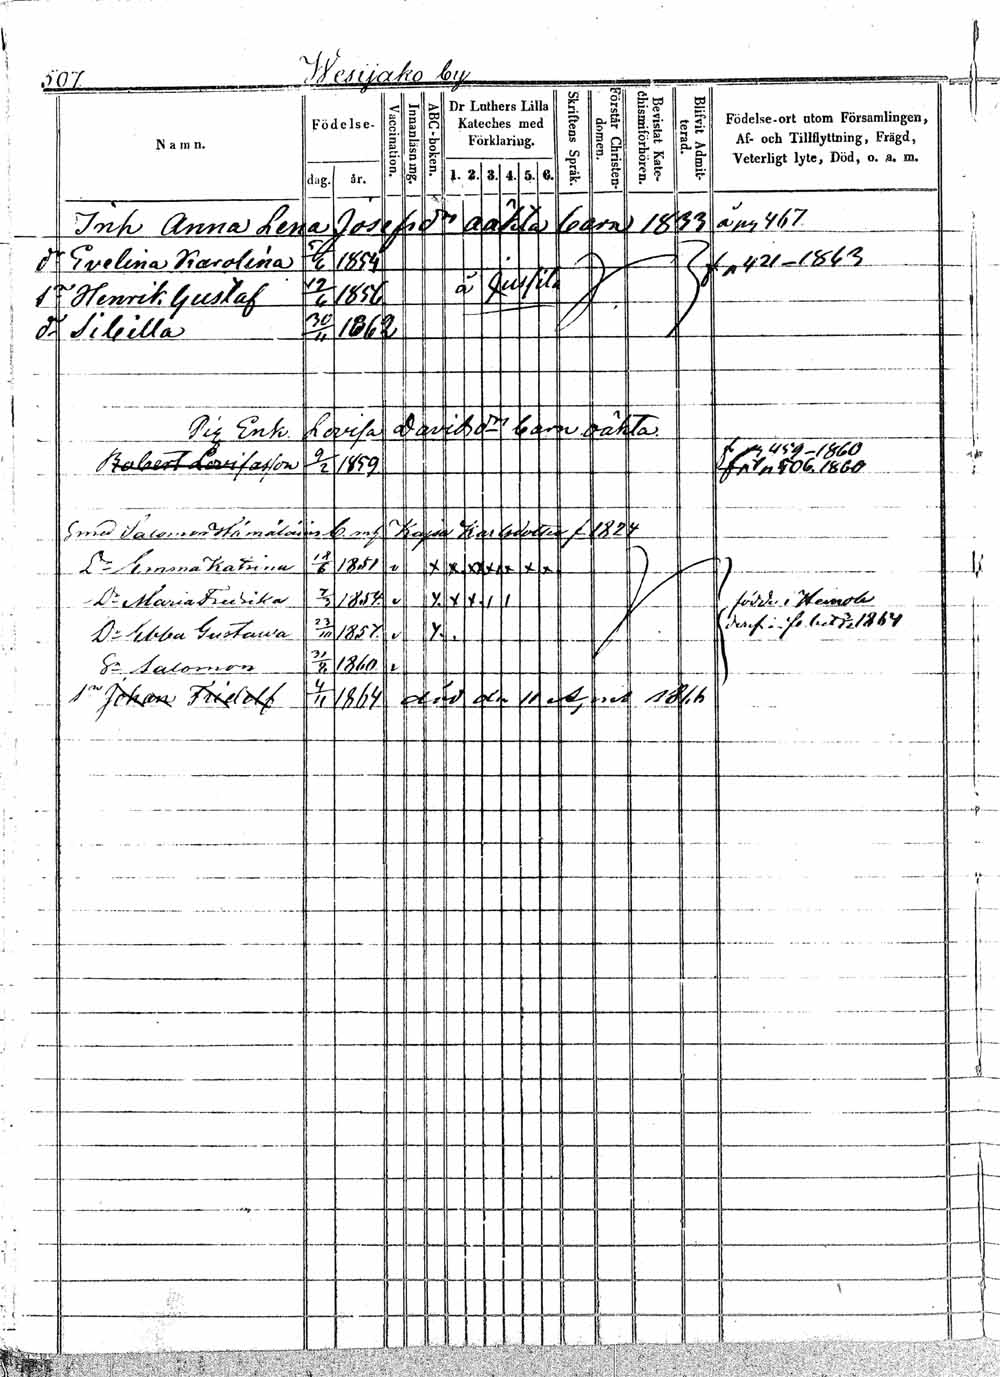 507. Wesijako by
Namn.
Födelse-
dag. år.
Vaccination.
Innanläsning.
ABC-boken.
Dr Luthers Lilla Kateches med Förklaring.
1. 2. 3. 4. 5. 6.
Skriftens Språk.
Förstår Christendomen.
Bevistat Katechismiförhören.
Blifvit Admitterad.
Födelse-ort utom Församlingen,
Af- och Tillflyttning, Frägd,
Veterligt lyte, Död, o. a. m.
Inh Anna Lena Josefsdr oäkta barn 1833 å pg 467
dr Evelina Karolina 1854 f. p 421-1863
sn Henrik Gustaf 12/6 1856 å
dr Sibilla 30/11 1862
Pig Enk. Lovisa Davidsdr barn oäkta
Robert Lovisasson 9/2 1859 f. pg 459-1860
506. 1860
Salomon Hämäläinen Kajsa Karlsdotter f 1824
Dr Emma Katrina 18/6 1851 v x x x x x x x
Dr Maria Fredrika 7/3 1854. v x x x
födde i Heinola
Dr Ebba Gustawa 1857. v x
1864
Sn Salomon 1860 v
sn Johan Fridolf 4/11 1864 död den 11 April 1866